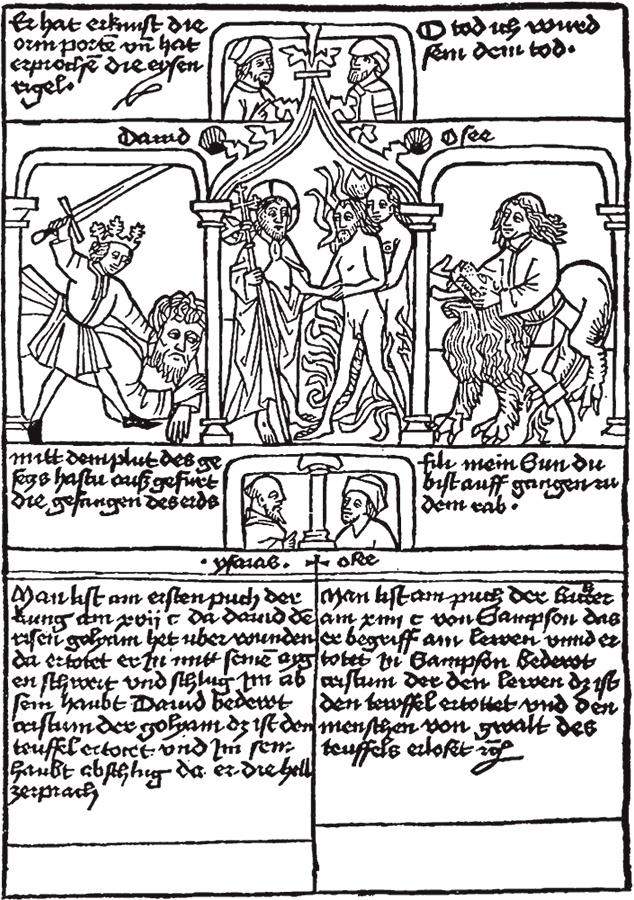 Er hat erknust die
orin porte vn̄ hat
erproche die eysen
rigel.
O tod ich wurd
sein dem tod.
Dauid
Osee
mitt dem plut des ge
segs hastu auß gefürt
die gefangen des erds
fili mein Sun du
bist auff gangen zu
dem rab.
ysaias. osee
Man list am ersten puch der
kung am xvij c da dauid dē
risen golyam het uber wunden
da ertotet er in mitt seinē aig
en schwert vnd schlug im ab
sein haubt Dauid bedewt
cristum der golyam dz ist den
teuffel ertotet vnd im sein
haubt abschlug da er die hell
zerprach
Man list am puch der
am xiiii c von Sampson das
er begriff ain lewen vnnd er
totet in Sampson bedewt
cristum der den lewen dz ist
den tewffel ertottet vnd den
menschen von gwalt des
teuffels erloset